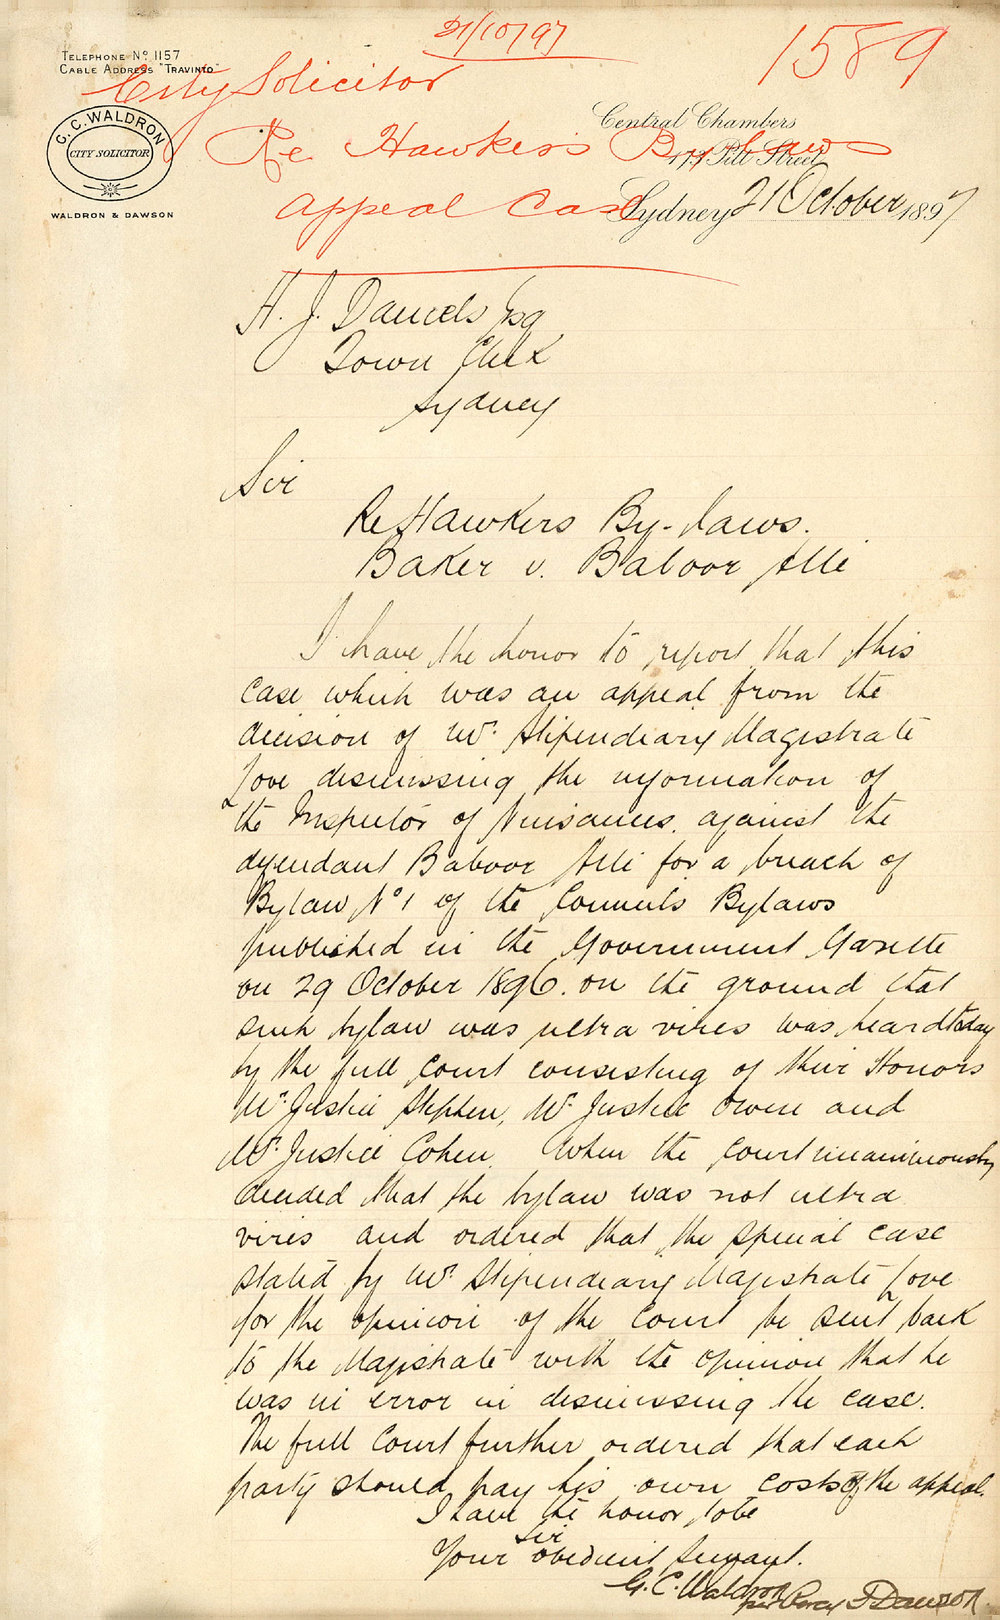 21/10/97
1589
TELEPHONE No. 1157
CABLE ADDRESS "TRAVINTO"
City Solicitor
Re Hawkers By Laws
Appeal Case
G. C. WALDRON
CITY SOLICITOR
WALDRON & DAWSON
Central Chambers
Pitt Street
Sydney 21 October 1897
H. J. Daniels Esq
Town Clerk
Sydney
Sir
Re Hawkers By-laws.
Baker v. Baboor Alli
I have the honor to report that this
case which was an appeal from the
decision of Mr. Stipendiary Magistrate
Love dismissing the information of
the Inspector of Nuisances. against the
defendant Baboor Alli for a breach of
Bylaw No 1 of the Councils Bylaws
published in the Government Gazette
on 29 October 1896. on the ground that
such bylaw was ultra vires was heard today
by the full Court consisting of their Honors
Mr. Justice Stephen, Mr. Justice Owen and
Mr. Justice Cohen. When the Court unanimously
decided that the bylaw was not ultra
vires and ordered that the special case
stated by Mr. Stipendiary Magistrate Love
for the opinion of the Court be sent back
to the Magistrate with the opinion that he
was in error in dismissing the case.
The full Court further ordered that each
party should pay his own costs of the appeal.
I have the honor to be
Sir
Your obedient Servant.
G. C. Waldron
per Percy J Dawson